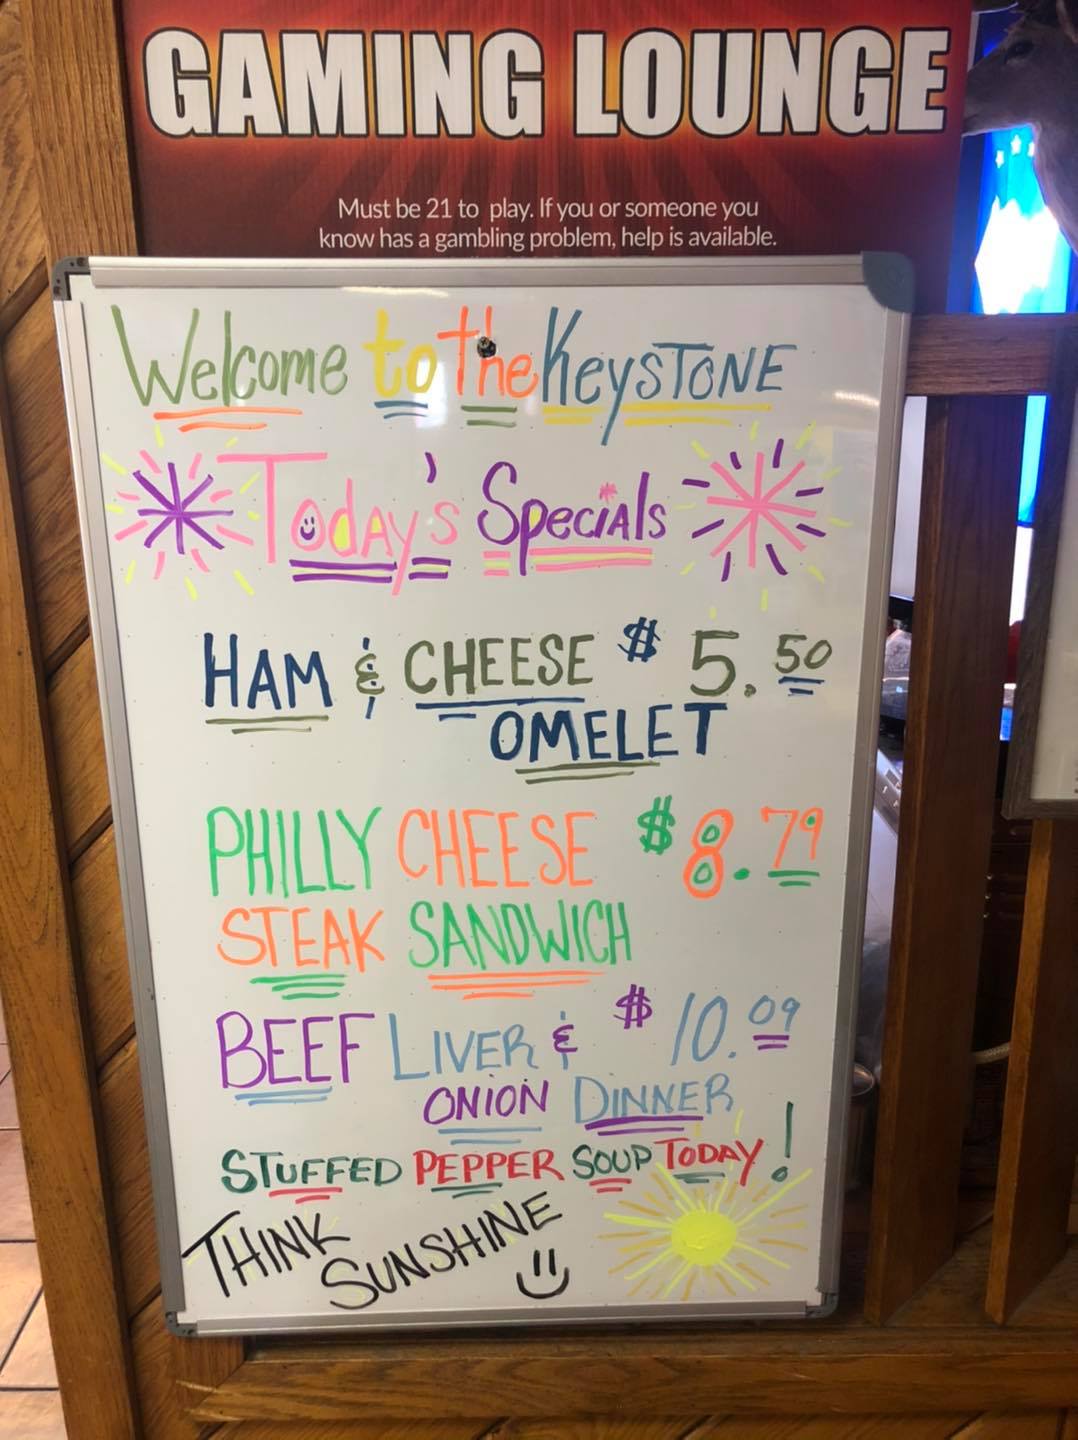 GAMING LOUNGE
Must be 21 to play. If you or someone you
know has a gambling problem, help is available.
Welcome to the KeysTONE
Today's Specials
HAM & CHEESE $ 5.50
OMELET
PHILLY CHEESE $ 8.79
STEAK SANDWICH
BEEF LIVER & $ 10.09
ONION DINNER
STUFFED PEPPER SOUP TODAY!
THINK
SUNSHINE